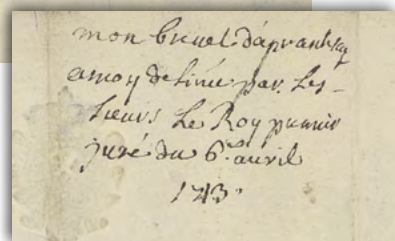 mon brevet d'aprantisag
a moy delivré par Les
sieurs Le Roy premier
juré du 6.e avril
1713.